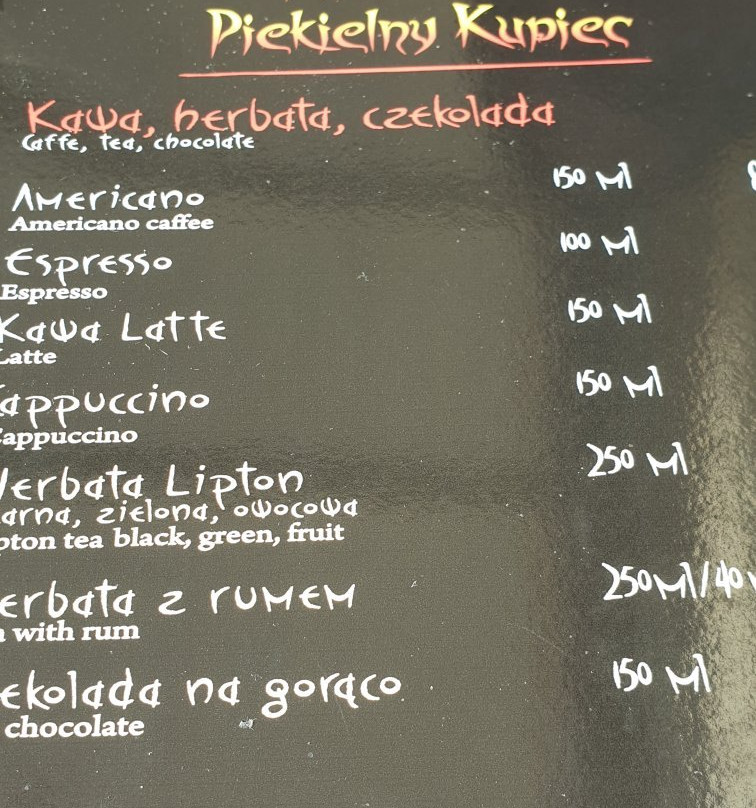 Piekielny Kupiec
Kawa, herbata, czekolada
Caffe, tea, chocolate
Americano 150 ml
Americano caffee
Espresso 100 ml
Espresso
Kawa Latte 150 ml
Latte
appuccino 150 ml
appuccino
Herbata Lipton 250 ml
arna, zielona, owocowa
pton tea black, green, fruit
erbata z rumem 250ml/40
with rum
ekolada na gorąco 150 ml
chocolate